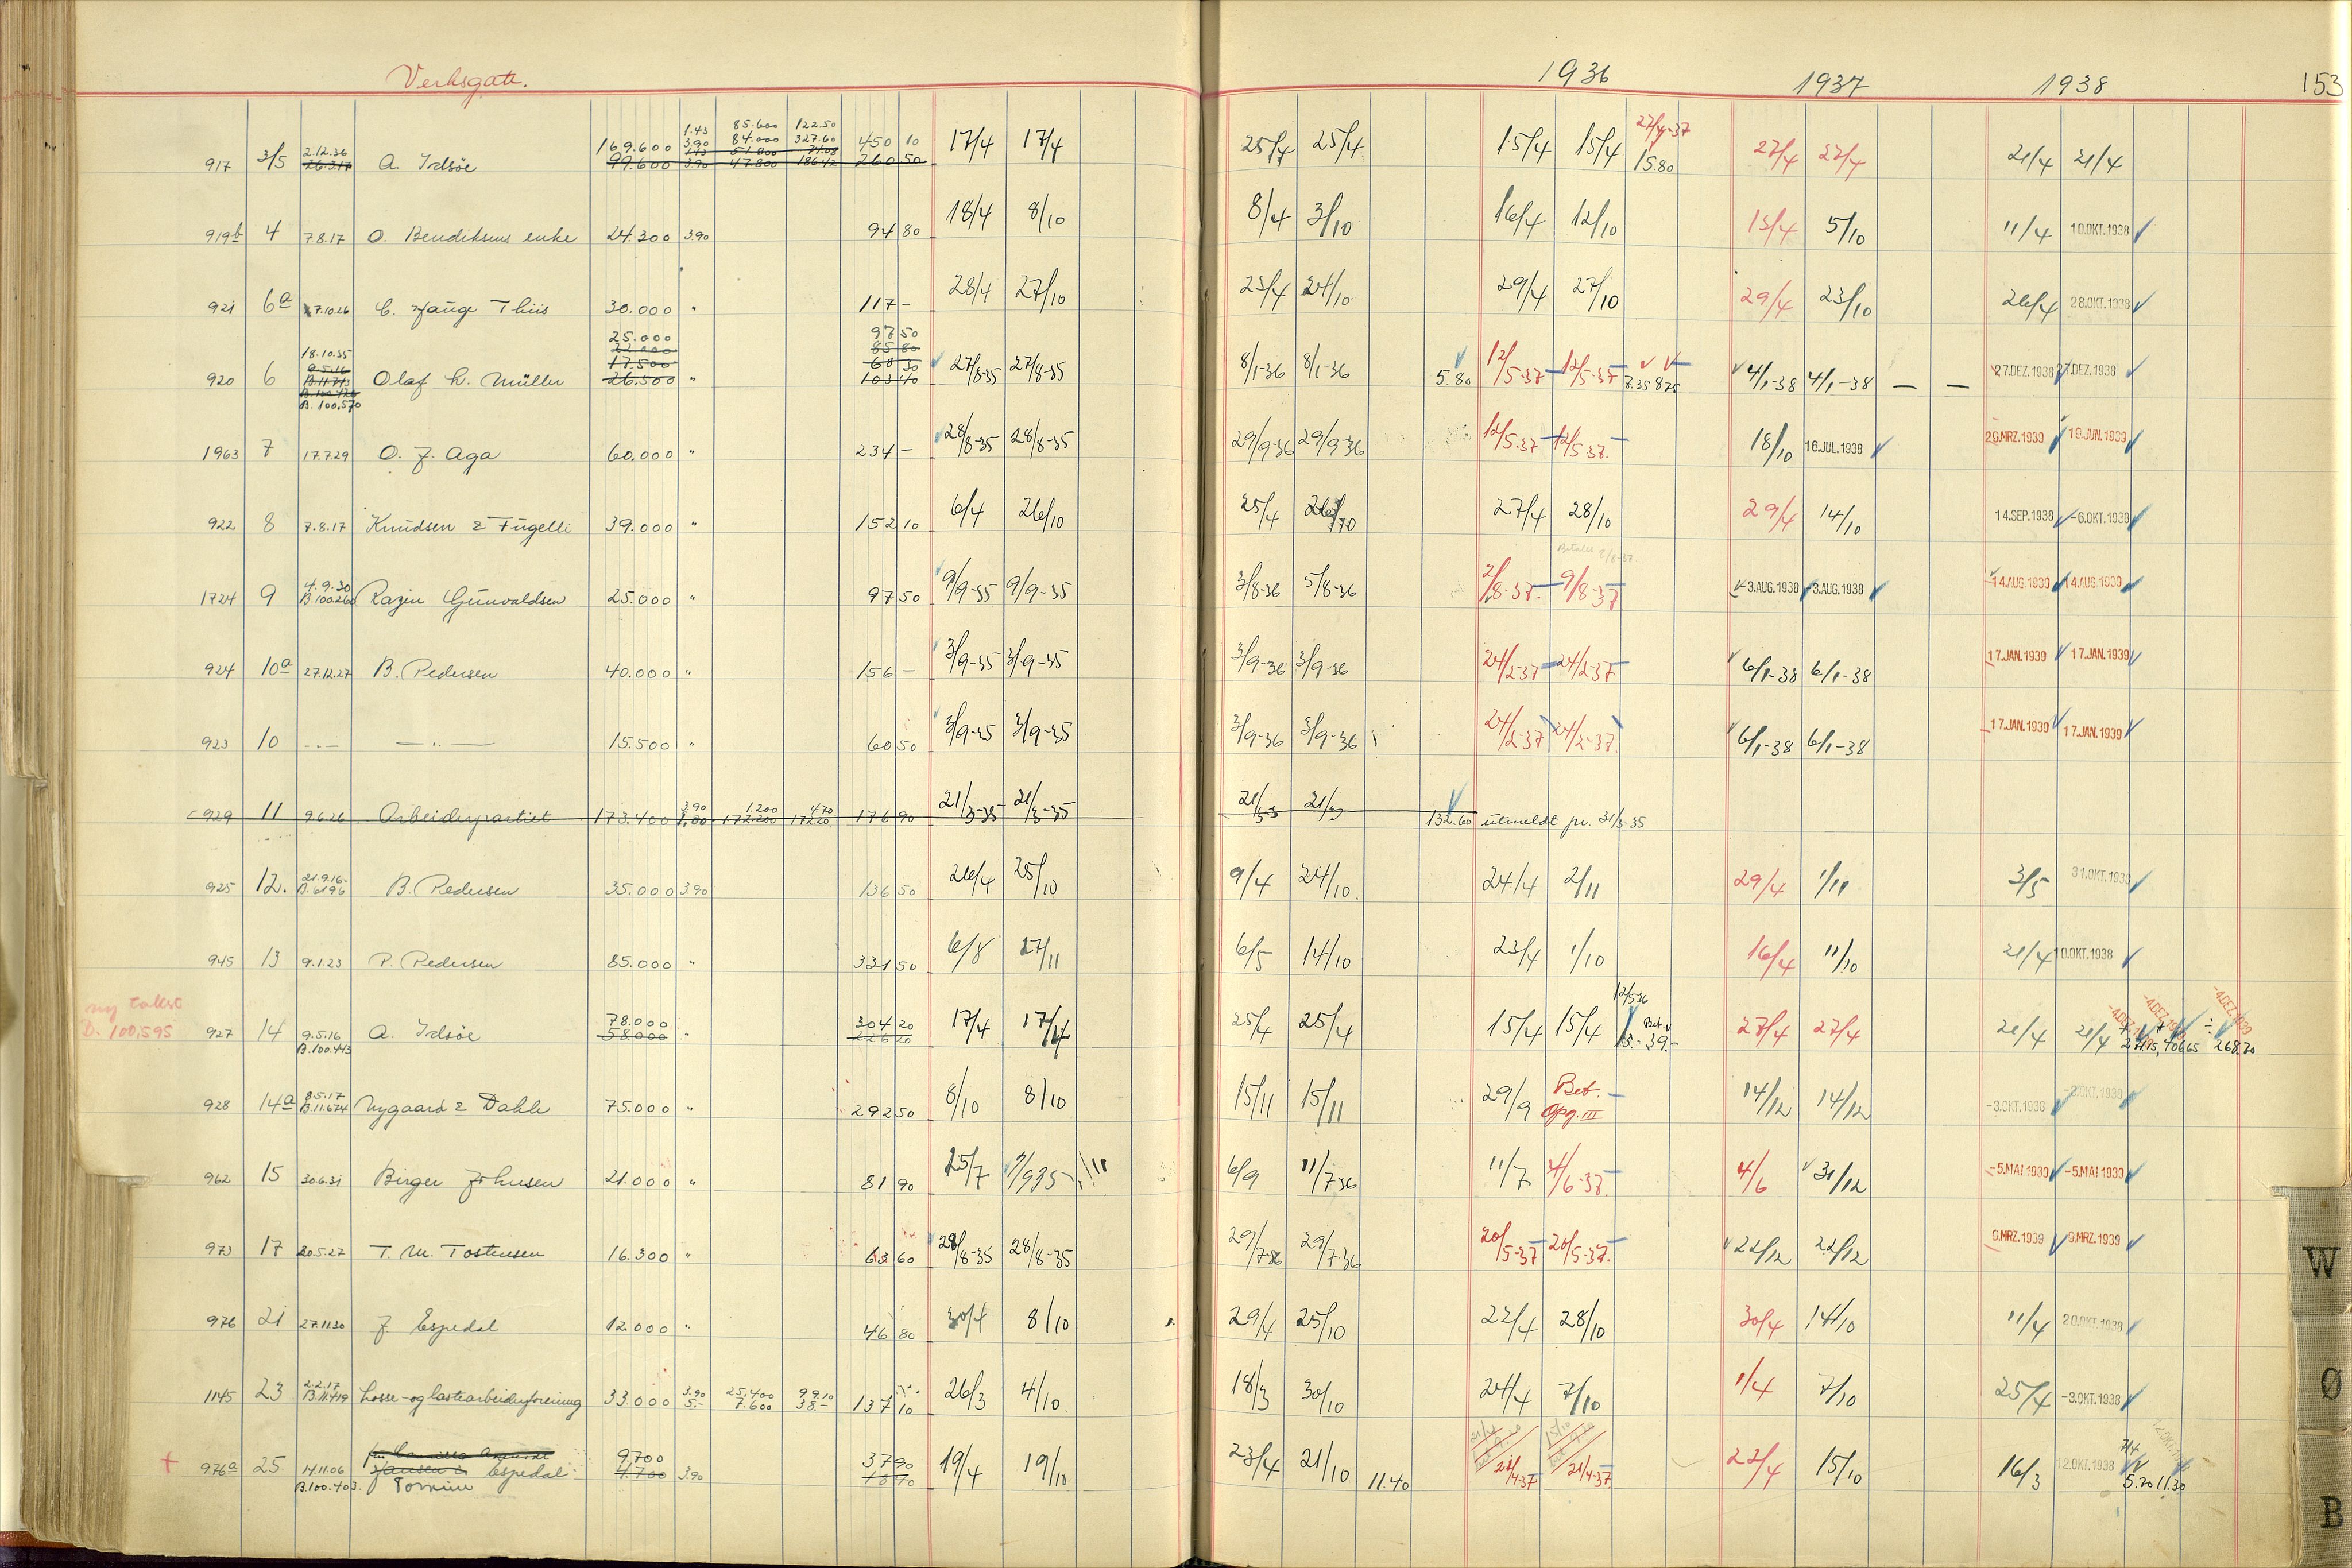 Verksgate.
1936 1937 1938 153
917 3/5 2.12.36 26.3.17 A. Idsöe 169.600 99.600 1.43 3.90 3.90 85.600 84.000 51.800 47.800 122.50 327.60 186.42 450 10 260 50 17/4 17/4 25/4 25/4 15/4 15/4 27/4-37 15.80 27/4 27/4 21/4 21/4
919b 4 7.8.17 O. Bendiksens enke 24.300 3.90 94 80 18/4 8/10 8/4 3/10 16/4 12/10 13/4 5/10 11/4 10.OKT.1938
921 6a 7.10.26 C. Hauge Thiis 30.000 " 117 - 28/4 27/10 23/4 24/10 29/4 27/10 29/4 23/10 26/4 28.OKT.1938
920 6 18.10.35 9.5.16 B.11.713 B.100.570 Olaf L. Müller 25.000 22.000 17.500 26.500 " 97 50 85 80 68 30 103 40 27/8-35 27/8-35 8/1-36 8/1-36 5.80 12/5-37 12/5-37 7.35 8.75 4/1-38 4/1-38 — — 27.DEZ.1938 27.DEZ.1938
1963 7 17.7.29 O. J. Aga 60.000 " 234 - 28/8-35 28/8-35 29/9-36 29/9-36 12/5-37 12/5-37. 18/10 16.JUL.1938 29.MRZ.1939 19.JUN.1939
922 8 7.8.17 Knudsen & Fugelli 39.000 " 152 10 6/4 26/10 25/4 26/10 27/4 28/10 29/4 14/10 14.SEP.1938 -6.OKT.1938
1724 9 4.9.30 B.100.260 Razin Gunvaldsen 25.000 " 97 50 9/9-35 9/9-35 3/8-36 5/8-36 2/8-37. 9/8-37 -3.AUG.1938 -3.AUG.1938 14.AUG.1939 14.AUG.1939
924 10a 27.12.27 B. Pedersen 40.000 " 156 - 3/9-35 3/9-35 3/9-36 3/9-36 24/2-37 24/2-37 6/1-38 6/1-38 17.JAN.1939 17.JAN.1939
923 10 -..- —..— 15.500 " 60 50 3/9-35 3/9-35 3/9-36 3/9-36 24/2-37 24/2-37. 6/1-38 6/1-38 17.JAN.1939 17.JAN.1939
929 11 9.6.26 Arbeiderpartiet 173.400 3.90 1,00 1.200 172.200 4.70 172.20 176 90 21/3-35 21/3-35 132.60 utmeldt pr. 31/3-35
925 12. 21.9.16 B.6196 B. Pedersen 35.000 3.90 136 50 26/4 25/10 9/4 24/10. 24/4 2/11 29/4 1/11 3/5 31.OKT.1938
945 13 9.1.23 P. Pedersen 85.000 " 331 50 6/8 27/11 6/5 14/10 23/4 1/10 16/4 11/10 21/4 10.OKT.1938
ny takst
D. 100,595 927 14 9.5.16 B.100.443 A. Idsöe 78.000 58.000 " 304 20 226 20 17/4 17/4 25/4 25/4 15/4 15/4 12/5-36 Bet. 39.- 27/4 27/4 21/4 21/4 268.20
928 14a 8.5.17 B.11.674 Nygaard & Dahle 75.000 " 292 50 8/10 8/10 15/11 15/11 29/9 Bet. Opg. III 14/12 14/12 -3.OKT.1938 -3.OKT.1938
962 15 30.6.31 Birger Johnsen 21.000 " 81 90 25/7 7/9 35 6/9 11/7-36 11/7 4/6-37. 4/6 31/12 -5.MAI 1939 -5.MAI 1939
973 17 20.5.27 T. M. Tostensen 16.300 " 63 60 28/8-35 28/8-35 29/7-36 29/7-36 20/5-37 20/5-37. 22/12 22/12 9.MRZ.1939 9.MRZ.1939
976 21 27.11.30 J Espedal 12.000 " 46 80 30/4 8/10 29/4 25/10 22/4 28/10 30/4 14/10 11/4 20.OKT.1938
1145 23 2.2.17 B.11.419 Losse-og lastearbeiderforening 33.000 3.90 5.- 25.400 7.600 99.10 38.- 137 10 26/3 4/10 18/3 30/10 24/4 7/10 1/4 7/10 25/4 -3.OKT.1938
+ 976a 25 14.11.06 B.100.403. Hansen & Espedal J Tomine 9.700 4.700 3.90 37 90 19/4 19/10 23/4 21/10 11.40 21/4-37 21/4-37. 22/4 15/10 16/3 12.OKT.1938 7/4 5.20 11.30
W
Ø
B